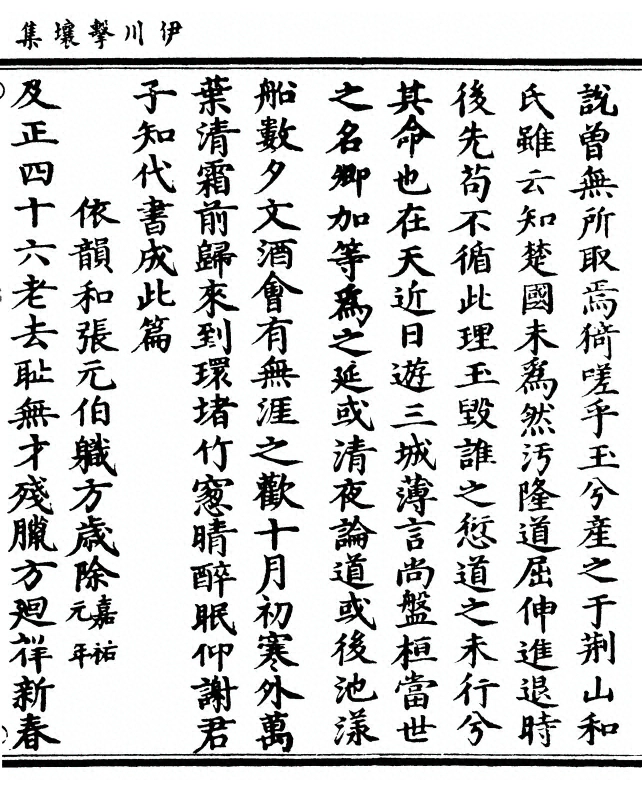 伊川擊壤集
說曾無所取焉猗嗟乎玉兮產之于荆山和
氏雖云知楚國未爲然汚隆道屈伸進退時
後先苟不循此理玉毀誰之愆道之未行兮
其命也在天近日遊三城薄言尚盤桓當世
之名卿加等爲之延或清夜論道或後池漾
船數夕文酒會有無涯之歡十月初寒外萬
葉清霜前歸來到環堵竹窻晴醉眠仰謝君
子知代書成此篇
依韻和張元伯職方歲除嘉祐元年
及正四十六老去恥無才殘臘方廻祥新春